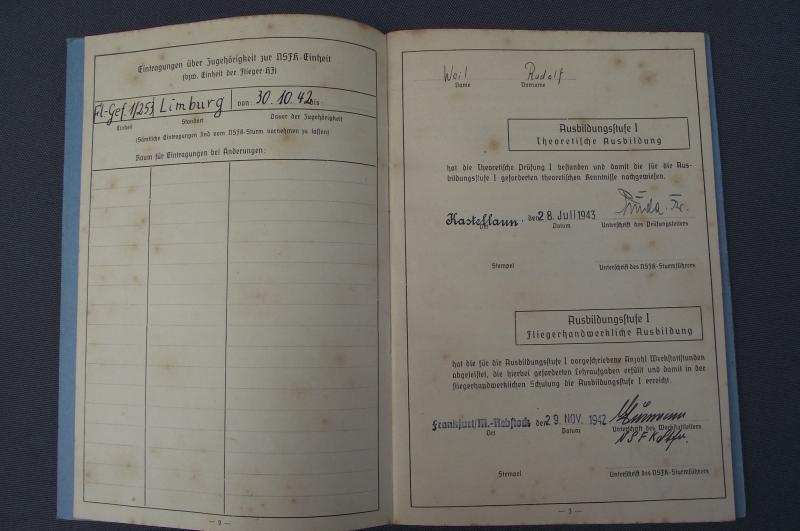 Eintragungen über Zugehörigkeit zur NSFK-Einheit
(bzw. Einheit der Flieger-HJ)
Fl.-Gef. 1/253 Limburg von 30.10.42 bis
Einheit Standort Dauer der Zugehörigkeit
(Sämtliche Eintragungen sind vom NSFK-Sturm vornehmen zu lassen)
Raum für Eintragungen bei Änderungen:
— 2 —
Weil Rudolf
Name Vorname
Ausbildungsstufe I
Theoretische Ausbildung
hat die Theoretische Prüfung I bestanden und damit die für die Aus-
bildungsstufe I geforderten theoretischen Kenntnisse nachgewiesen.
Kastellaun, den 28. Juli 1943
Ort Datum Unterschrift des Prüfungsleiters
Stempel Unterschrift des NSFK-Sturmführers
Ausbildungsstufe I
Fliegerhandwerkliche Ausbildung
hat die für die Ausbildungsstufe I vorgeschriebene Anzahl Werkstattstunden
abgeleistet, die hierbei geforderten Lehraufgaben erfüllt und damit in der
fliegerhandwerklichen Schulung die Ausbildungsstufe I erreicht.
Frankfurt/M.-Rebstock den 29. NOV. 1942
Ort Datum Unterschrift des Werkstattleiters
Stempel Unterschrift des NSFK-Sturmführers
— 3 —